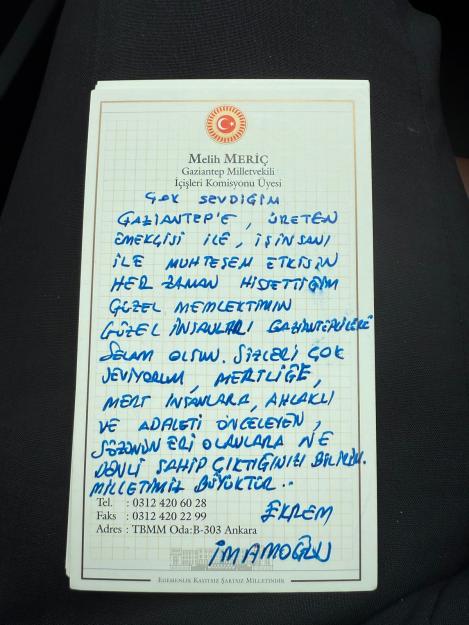 Melih MERİÇ
Gaziantep Milletvekili
İçişleri Komisyonu Üyesi
ÇOK SEVDİĞİM
GAZİANTEP'E, ÜRETEN
EMEKÇİSİ İLE, İŞİNSANI
İLE MUHTEŞEM ETKİSİN
HER ZAMAN HİSSETTİĞİM
GÜZEL MEMLEKTİMİN
GÜZEL İNSANLARI GAZİANTEPLİLERE
SELAM OLSUN. SİZLERİ ÇOK
SEVİYORUM, MERTLİĞE,
MERT İNSANLARA, AHLAKLI
VE ADALETİ ÖNCELEYEN,
SÖZÜNÜN ERİ OLANLARA NE
DENLİ SAHİP ÇIKTIĞINIZI BİLİRİM.
MİLLETİMİZ BÜYÜKTÜR..
Tel. : 0312 420 60 28
Faks : 0312 420 22 99
Adres : TBMM Oda:B-303 Ankara
EKREM
İMAMOĞLU
EGEMENLİK KAYITSIZ ŞARTSIZ MİLLETİNDİR